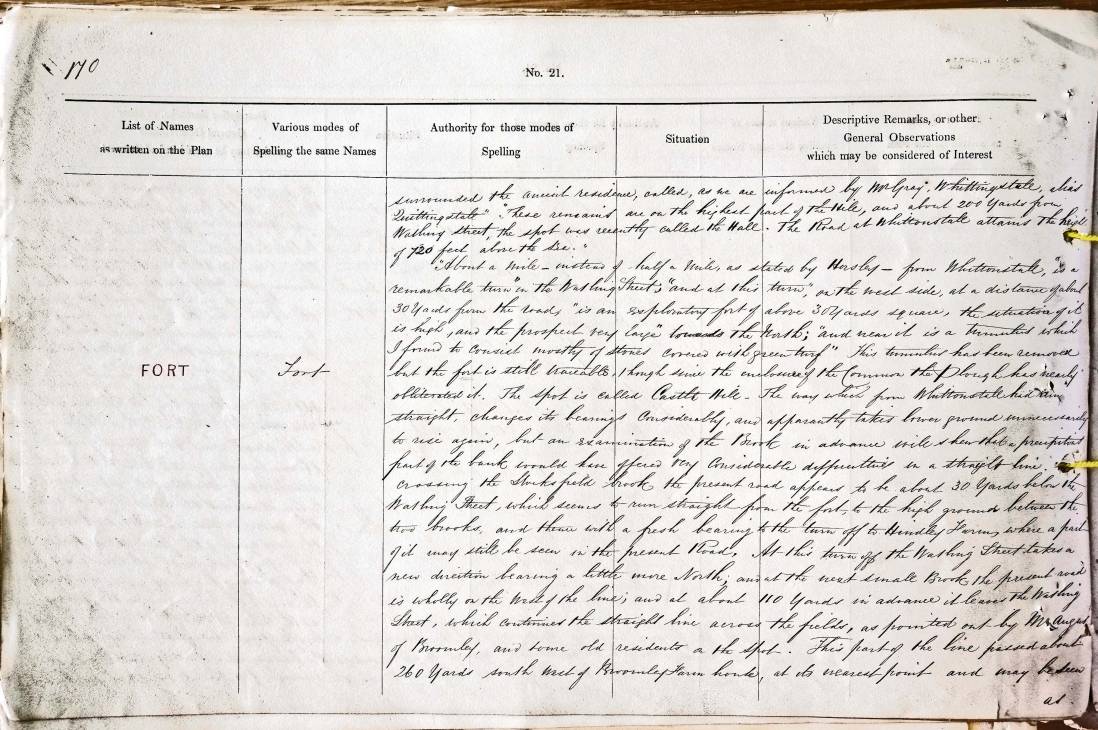 170
No. 21.
List of Names
as written on the Plan
Various modes of
Spelling the same Names
Authority for those modes of
Spelling
Situation
Descriptive Remarks, or other
General Observations
which may be considered of Interest
FORT
Fort
surrounded the ancient residence, called, as we are informed by Mr Gray, Whittingstale, alias
Quittingstale". These remains are on the highest part of the Hill, and about 200 Yards from
Watling Street, the spot was recently called the Hall. The Road at Whittonstall attains the height
of 720 feet above the Sea."
"About a Mile - instead of half a Mile, as stated by Horsley - from Whittonstall, "is a
remarkable turn in the Watling Street; "and at this turn", on the west side, at a distance of about
30 Yards from the road, "is an exploratory fort of above 30 Yards square, the situation of it
is high, and the prospect very large" towards the North; "and near it is a tumulus which
I found to consist mostly of stones covered with green turf" This tumulus has been removed
but the fort is still traceable, though since the enclosure of the Common the Plough has nearly
obliterated it. The spot is called Castle Hill - The way which from Whittonstall had
straight, changes its bearings Considerably, and apparantly takes lower ground unnecessarily
to rise again, but an examination of the Brook in advance will shew that a precipitous
part of the bank would have offered very Considerable difficulties in a straight line.
crossing the Stocksfield brook the present road appears to be about 30 Yards below the
Watling Street, which seems to run straight from the fort, to the high ground between the
two brooks, and thence with a fresh bearing to the turn off to Hindley Farm, where a part
of it may still be seen in the present Road. At this turn off the Watling Street takes a
new direction bearing a little more North; and at the next small Brook the present road
is wholly on the West of the line; and at about 110 Yards in advance it leaves the Watling
Street, which continues the straight line across the fields, as pointed out by Mr Angus
of Broomley, and some old residents on the spot. This part of the line passed about
260 Yards south West of Broomley Farm house, at its nearest point and may be seen
as